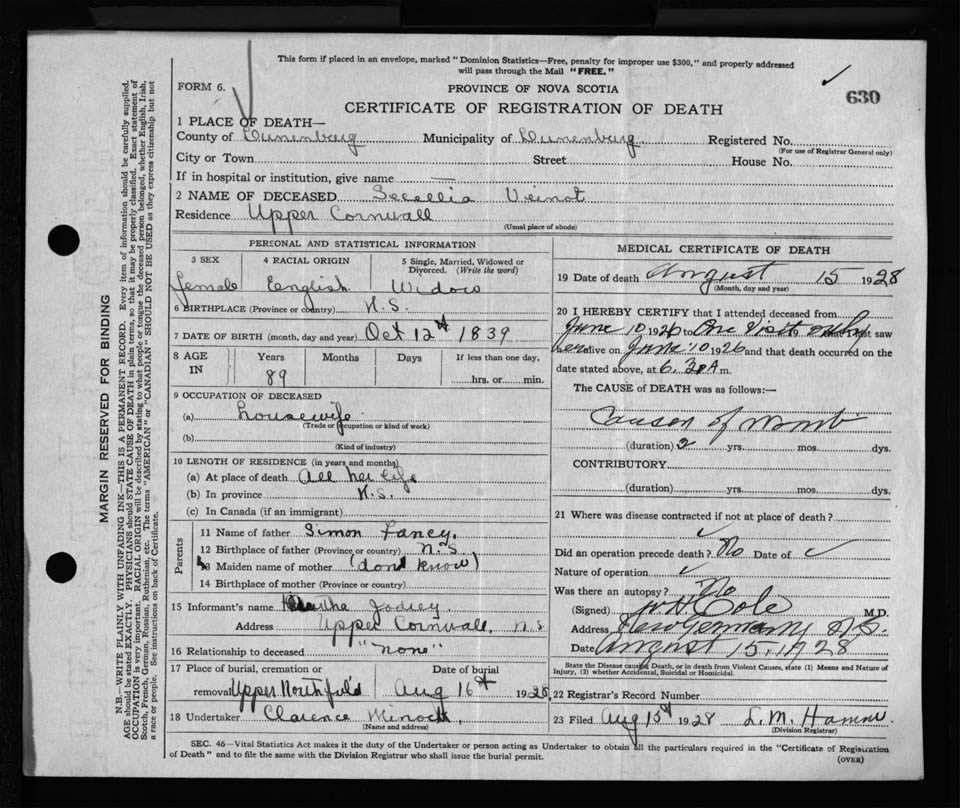 This form if placed in an envelope, marked "Dominion Statistics—Free, penalty for improper use $300," and properly addressed
will pass through the Mail "FREE."
FORM 6.
PROVINCE OF NOVA SCOTIA
630
CERTIFICATE OF REGISTRATION OF DEATH
1 PLACE OF DEATH—
County of Lunenburg Municipality of Lunenburg Registered No.
(For use of Registrar General only)
City or Town Street House No.
If in hospital or institution, give name —
2 NAME OF DECEASED Secellia Veinot
Residence Upper Cornwall
(Usual place of abode)
PERSONAL AND STATISTICAL INFORMATION
3 SEX 4 RACIAL ORIGIN 5 Single, Married, Widowed or
Divorced. (Write the word)
female English Widow
6 BIRTHPLACE (Province or country) N.S.
7 DATE OF BIRTH (month, day and year) Oct 12st 1839
8 AGE IN Years Months Days If less than one day,
89 hrs. or min.
9 OCCUPATION OF DECEASED
(a) housewife
(Trade or occupation or kind of work)
(b)
(Kind of industry)
10 LENGTH OF RESIDENCE (in years and months)
(a) At place of death All her life
(b) In province N.S.
(c) In Canada (if an immigrant)
Parents
11 Name of father Simon Lancy.
12 Birthplace of father (Province or country) N.S
13 Maiden name of mother (dont know)
14 Birthplace of mother (Province or country)
15 Informant's name
Address Upper Cornwall, N.S
16 Relationship to deceased "none"
17 Place of burial, cremation or Date of burial
removal Upper Northfield Aug 16st 1928
18 Undertaker Clarence
(Name and address)
MEDICAL CERTIFICATE OF DEATH
19 Date of death August 15 1928
(Month, day and year)
20 I HEREBY CERTIFY that I attended deceased from
June 10 1926 to One Visit only I last saw
her alive on June 10 1926 and that death occurred on the
date stated above, at 6.30 A m.
The CAUSE of DEATH was as follows:—
Cancer of Womb
(duration) 2 yrs. mos. dys.
CONTRIBUTORY
(duration) yrs. mos. dys.
21 Where was disease contracted if not at place of death?
Did an operation precede death? No Date of
Nature of operation
Was there an autopsy? No
(Signed) Cole M.D.
Address New Germany N.S.
Date August 15, 1928
State the Disease causing Death, or in death from Violent Causes, state (1) Means and Nature of
Injury, (2) whether Accidental, Suicidal or Homicidal.
22 Registrar's Record Number
23 Filed Aug 15st 1928 L.M.
(Division Registrar)
SEC. 46—Vital Statistics Act makes it the duty of the Undertaker or person acting as Undertaker to obtain all the particulars required in the "Certificate of Registration
of Death" and to file the same with the Division Registrar who shall issue the burial permit.
(OVER)
MARGIN RESERVED FOR BINDING
N.B.—WRITE PLAINLY WITH UNFADING INK—THIS IS A PERMANENT RECORD. Every item of information should be carefully supplied.
AGE should be stated EXACTLY. PHYSICIANS should STATE CAUSE OF DEATH in plain terms, so that it may be properly classified. Exact statement of
OCCUPATION is very important. RACIAL ORIGIN will be described by stating to what people or tongue the deceased person belonged, whether English, Irish,
Scotch, French, German, Russian, Ruthenian, etc. The terms "AMERICAN" or "CANADIAN" SHOULD NOT BE USED as they express citizenship but not
a race or people. See instructions on back of Certificate.